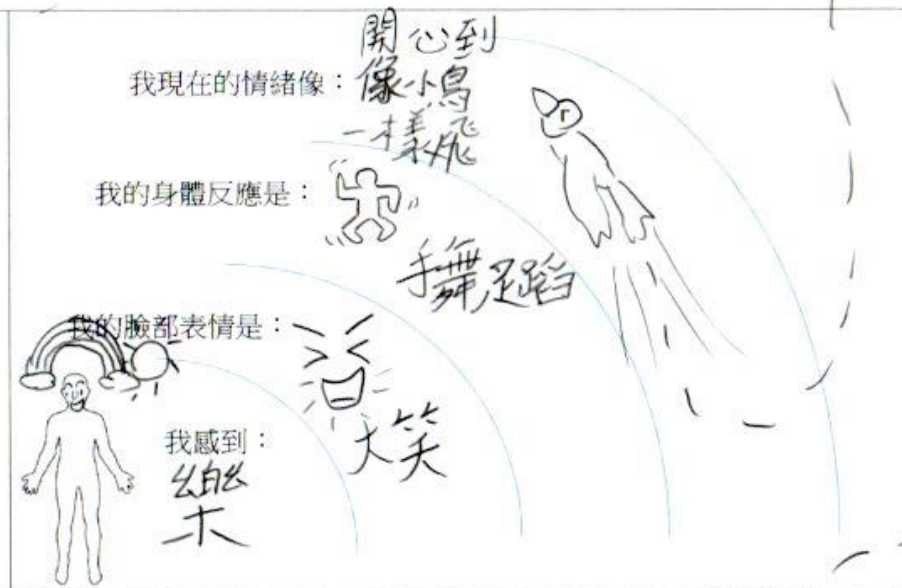 我現在的情緒像：開心到
像小鳥
一樣飛
我的身體反應是：
手舞足蹈
我的臉部表情是：
大笑
我感到：
樂